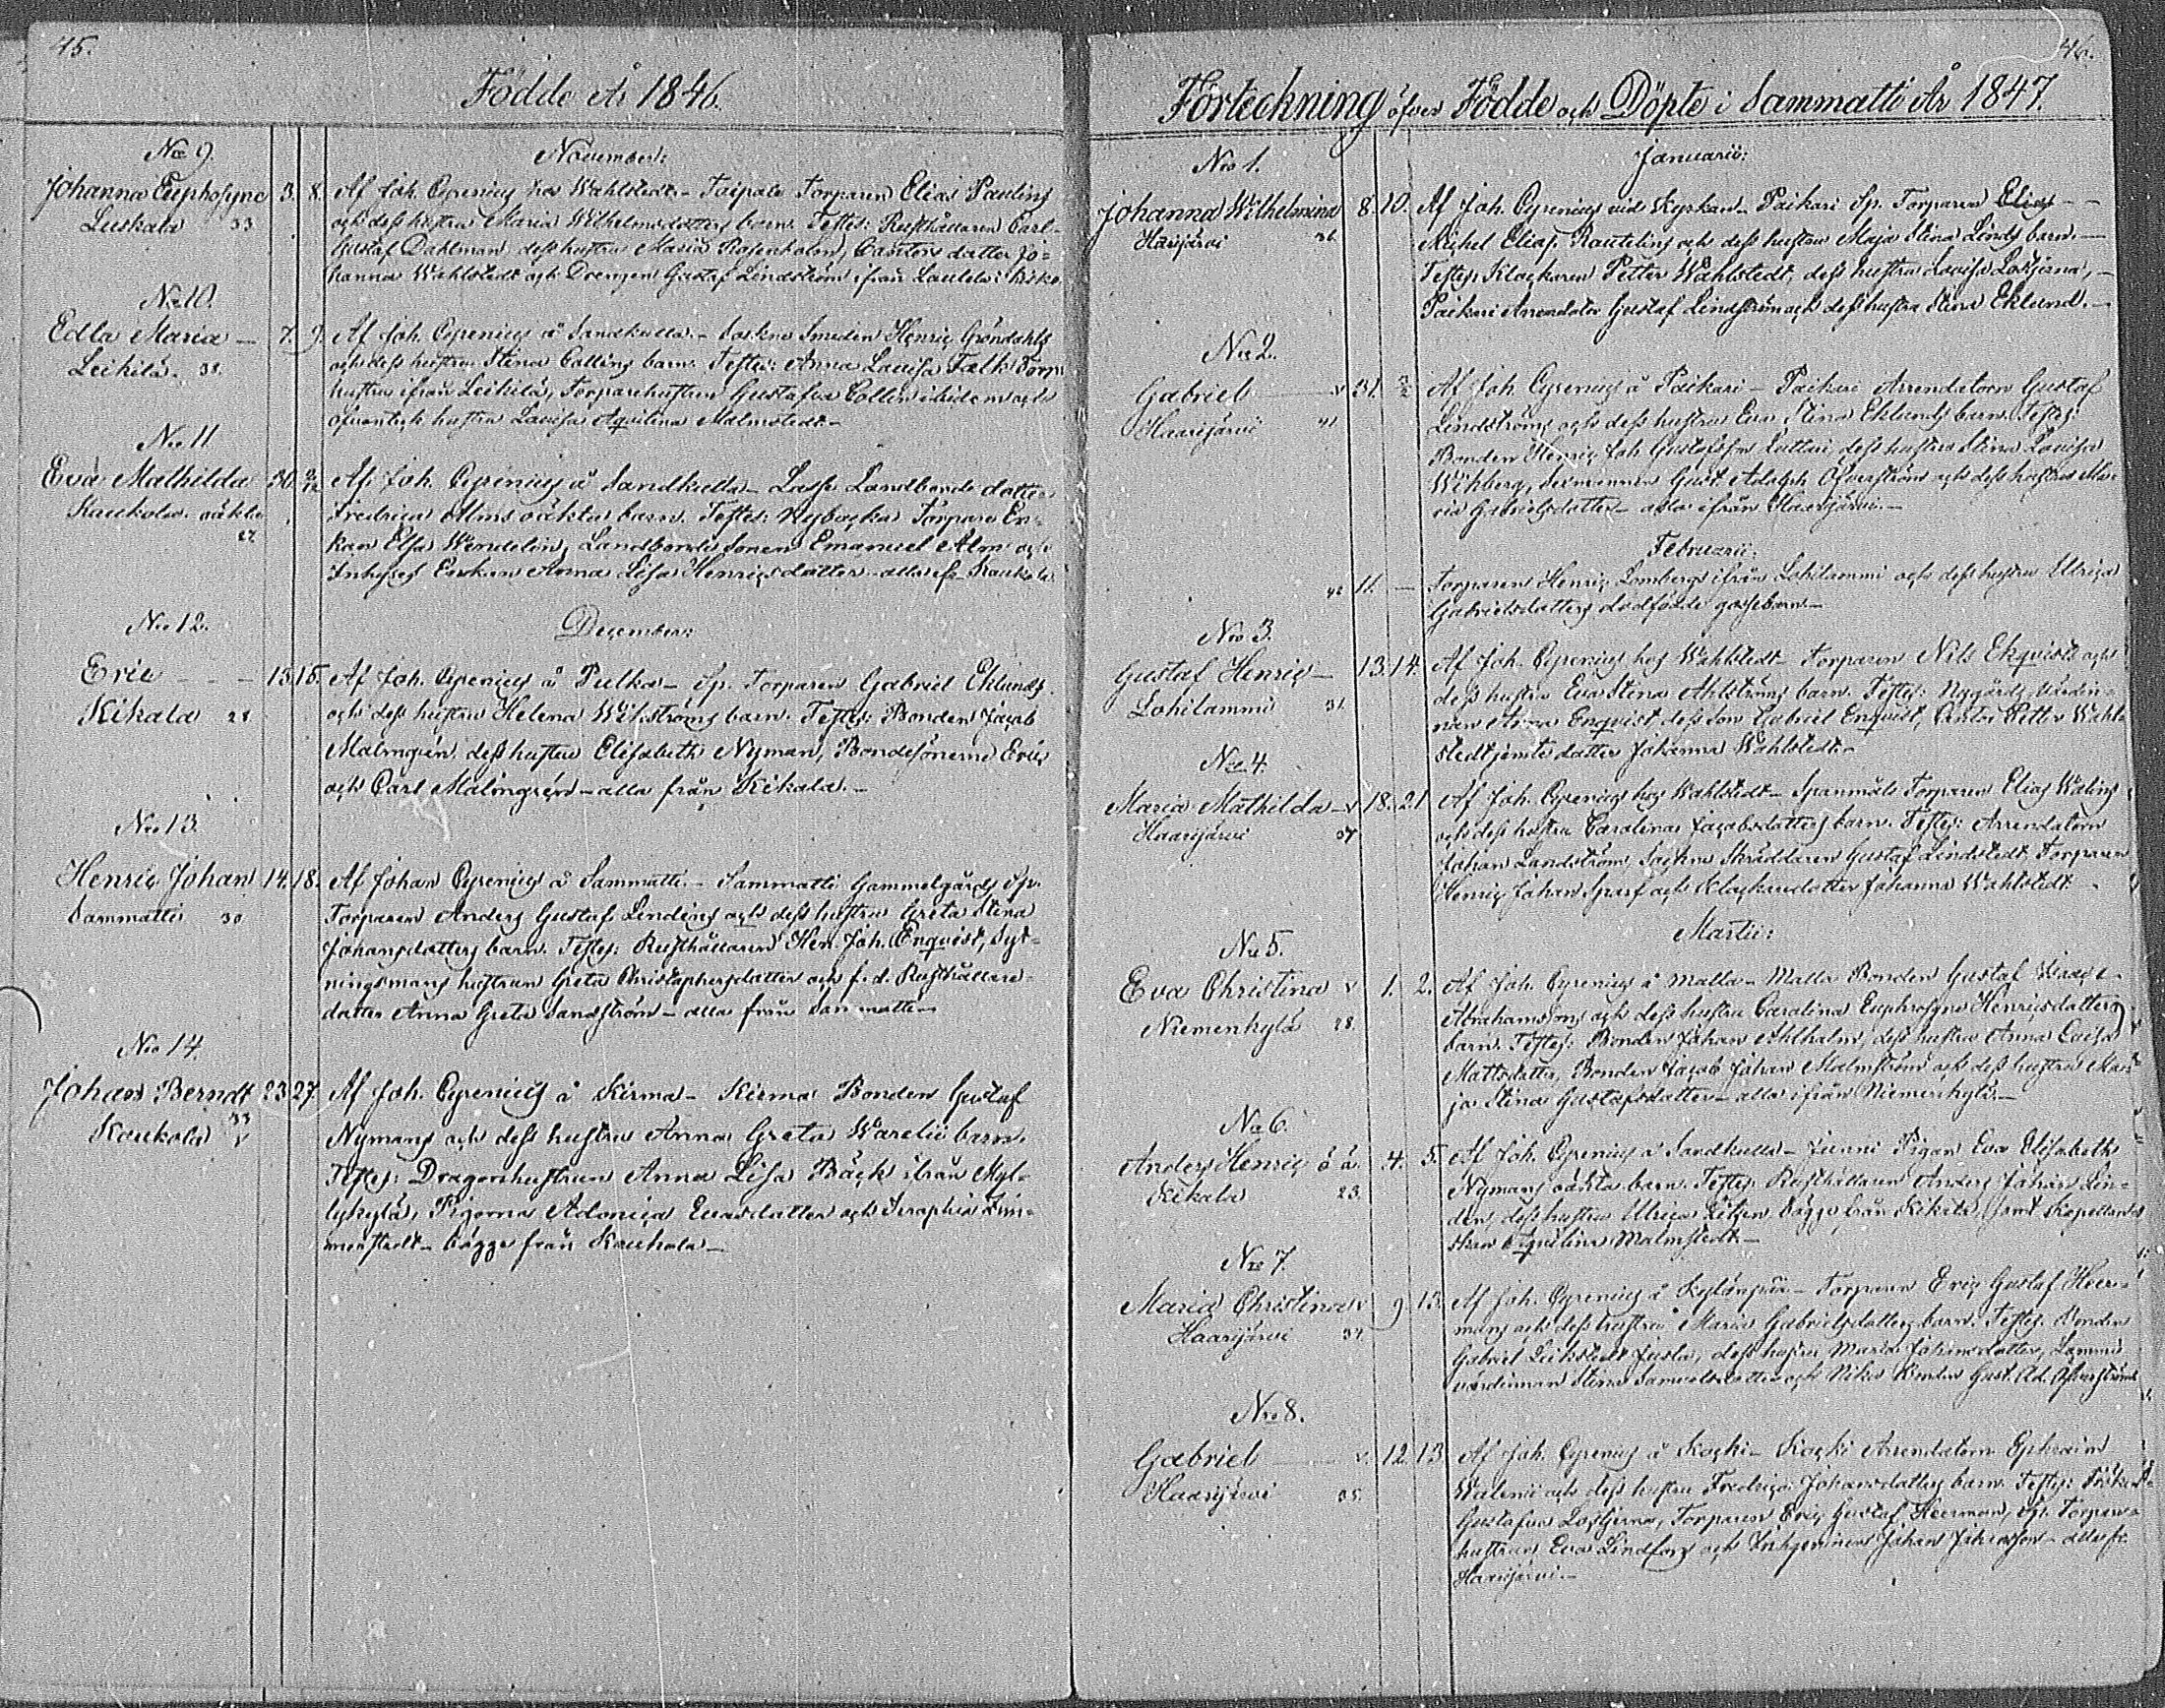 45.
Födde År 1846.
No 9.
November:
Johanna Euphosyne 3. 8. Af Joh. Cyrenius hos Wahlstedt - Taipale Torparen Elias Paulins
Luskala 33 och dess hustru Maria Wilhelmsdotters barn. Testes: Rusthållaren Carl
Gustaf Dahlman dess hustru Maria Rosenholm, Cantors dotter Jo-
hanna Wahlstedt och Drengen Gustaf Lindström ifrån Laukola i Kisko.
No 10.
Edla Maria - 7. 9. Af Joh. Cyrenius å Sandkulla. - Sockne Smeden Henric Gröndahls
Leikilä. 38. och dess hustru Stina Collins barn. Testes: Anna Lovisa Falk Torp
hustru ifrån Leikilä, Torparehustrun Gustafva Collin ibidem och
hustru Lovisa Aquilina Malmstedt -
No 11
Eva Mathilda 30. 2/12 Af Joh. Cyrenius å Sandkulla - Lasse Landbonde dotter
Kaukola. oäkta Fredrica Alms oäkta barn. Testes: Nybacka Torpare En-
27 kan Elsa Wendelin, Landbonde Sonen Emanuel Alm och
Inhyses Enkan Anna Lisa Henricsdotter - alla ifr. Kaukola
No 12.
December:
Eric - - - 13. 15. Af Joh. Cyrenius å Pulka - Sp. Torparen Gabriel Eklunds
Kikala 28 och dess hustru Helena Wikströms barn. Testes: Bonden Jacob
Malmgrén dess hustru Elisabeth Nyman, Bondesönerne Eric
och Carl Malmgrén - alla från Kikala. -
No 13.
Henric Johan 14. 18. Af Johan Cyrenius å Sammatti. - Sammatti Gammelgårds Sp.
Sammatti 30 Torparen Anders Gustaf Lindéns och dess hustru Greta Stina
Johansdotters barn. Testes: Rusthållaren Hen. Joh. Enqvist, Syt-
ningsmans hustrun Greta Christophersdotter och f.d. Rusthållare-
dotter Anna Greta Sandström - alla från Sammatti -
No 14.
Johan Berndt 23. 27. Af Joh. Cyrenius å Kirma - Kirma Bonden Gustaf
33
Kaukola v Nymans och dess hustru Anna Greta Warelii barn.
Testes: Dragonhustrun Anna Lisa Bäck ifrån Myl-
lykylä, Pigorna Adonica Evasdotter och Seraphia Lim-
monstedt - bägge från Kaukola -
46.
Förteckning öfver Födde och Döpte i Sammatti År 1847.
No 1.
Januarii:
Johanna Wilhelmina 8. 10. Af Joh. Cyrenius vid Kyrkan - Paikari Sp. Torparen Elias - -
Haarijärvi 36. Michel Elias. Rautelins och dess hustru Maja Stina Linds barn. -
Testes: Klockaren Petter Wahlstedt, dess hustru Lovisa Lostjerna, -
Paikari Arrendator Gustaf Lindström och dess hustru Stina Eklund. -
No 2.
Gabriel v 31. 2/2 Af Joh. Cyrenius å Paikari - Paikari Arrendatorn Gustaf
Haarijärvi 41 Lindströms och dess hustru Eva Stina Eklunds barn. Testes:
Bonden Henric Joh Gustafsson Luttari, dess hustru Stina Lovisa
Wikberg, Gust. Adolph Öfverström och dess hustru Ma-
ria Gabrielsdotter - alla ifrån Haarijärvi. -
Februarii:
42 11. - Torparen Henric Lombergs ifrån Lohilammi och dess hustru Ulrica
Gabrielsdotters dödfödde gossebarn -
No 3.
Gustaf Henric - 13. 14. Af Joh. Cyrenius hos Wahlstedt - Torparen Nils Ekqvists och
Lohilammi 31. dess hustru Eva Stina Ahlströms barn. Testes: Nygårds värdin-
nan Enqvist, dess son Gabriel Enqvist, Cantor Petter Wahl-
stedt jemte dotter Johanna Wahlstedt -
No 4.
Maria Mathilda - v 18. 21. Af Joh. Cyrenius hos Wahlstedt - Torparen Elias Walins
Haarijärvi 37 och dess hustru Carolina Jacobsdotters barn. Testes: Arrendatorn
Johan Landström, Sockne Skräddaren Gustaf Lindstedt, Torparen
Henric Johan Sparf och Klockaredotter Johanna Wahlstedt.
Martii:
No 5.
Eva Christina v 1. 2. Af Joh. Cyrenius å Malla - Malla Bonden Gustaf Isaac
Niemenkylä 28. Abrahamsons och dess hustru Carolina Euphrosyne Henricsdotters
barn. Testes: Bonden Johan Ahlholm, dess hustru Anna Lovisa
Mattsdotter, Bonden Jacob Johan Malmström och dess hustru Ma-
ja Stina Gustafsdotter - alla ifrån Niemenkylä. -
No 6.
Anders Henric o ä. 4. 5. Af Joh. Cyrenius å Sandkulla - Junni Pigan Eva Elisabeth
Kikala 23. Nymans oäkta barn. Testes: Rusthållaren Anders Johan Lin-
dén, dess hustru Ulrica bägge från Kikala, samt Kapellans-
skan Aquilina Malmstedt -
No 7.
Maria Christina v 9. 13. Af Joh. Cyrenius å Kylänpää - Torparen Eric Gustaf Heer-
Haarijärvi 34. mans och dess hustru Maria Gabrielsdotters barn. Testes: Bonden
Gabriel Jusla, dess hustru Maria Johansdotter, Lammi
värdinnan Stina Samuelsdotter och Gust. Ad. Öfverström
No 8.
Gabriel v. 12. 13. Af Joh. Cyrenius å Kocki - Kocki Arrendatorn Ephraim
Haarijärvi 35. Walenii och dess hustru Fredrica Johansdotters barn. Testes: Fröken
Gustafva Lostjerna, Torparen Eric Gustaf Heerman, Sp. Torpare-
hustrun Eva Lindfors och Johan Johansson - alla fr.
Haarijärvi. -